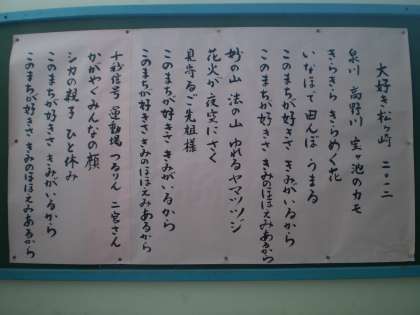 大好き松ヶ崎 二〇一二
泉川 高野川 宝ヶ池のカモ
きらきら きらめく花
いなほで田んぼ うまる
このまちが好きさ きみがいるから
このまちが好きさ きみのほほえみあるから
妙の山 法の山 ゆれるヤマツツジ
花火が夜空にさく
見守るご先祖様
このまちが好きさ きみがいるから
このまちが好きさ きみのほほえみあるから
十秒信号 運動場 つるりん 二宮さん
かがやくみんなの顔
シカの親子 ひと休み
このまちが好きさ きみがいるから
このまちが好きさ きみのほほえみあるから